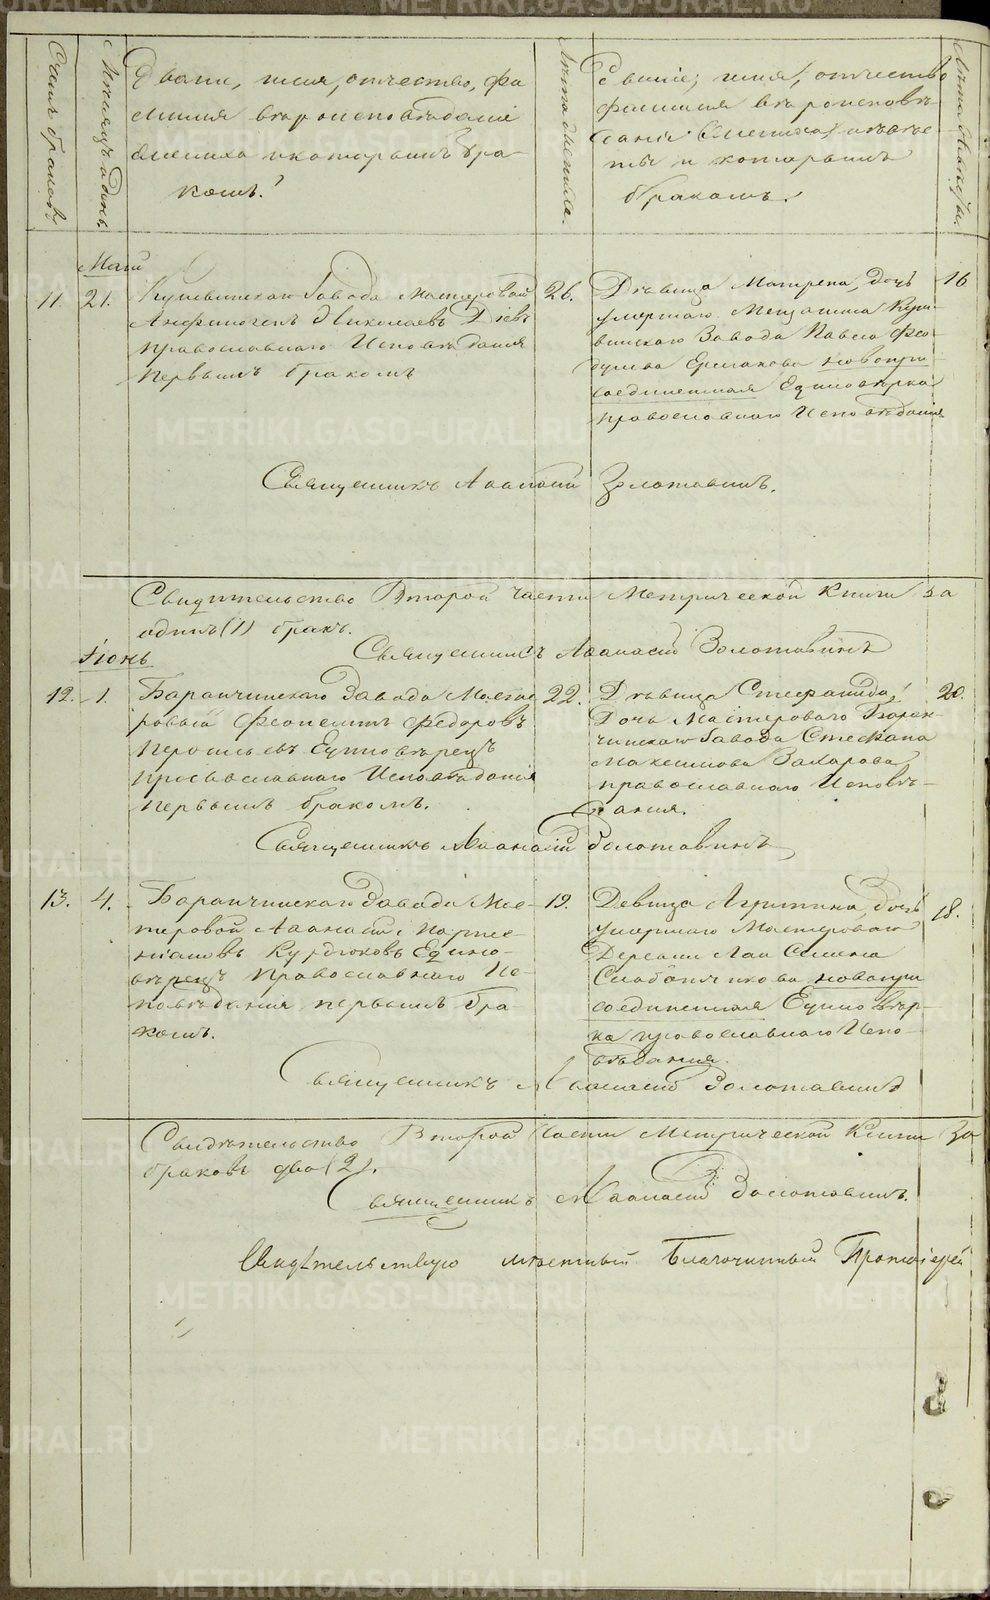 Счетъ браковъ
Мѣсяцъ и день
Званіе, имя, отчество, фа
милия вѣроисповѣданіе
жениха и которымъ бра-
комъ?
Лѣта жениха.
Званіе, имя, отчество
фамилия вѣроисповѣ-
даніе
ты и которымъ
бракомъ.
Лѣта невѣсты.
Маій
11. 21.
Кушвинскаго Завода Мастеровой
Анфиногенъ Николаевъ Діевъ
православнаго Исповѣданія
первымъ бракомъ
26.
Дѣвица Матрена, дочь
умершаго
винскаго Завода Павла Фе-
дулова Ермакова новопри-
соединенная Единовѣрка
православнаго Исповѣданія
16
Священникъ Аѳанасій Золотавинъ.
Свидительство Второй части Метрической Книги за
одинъ (1) бракъ.
Священникъ Аѳанасій Золотавинъ
Іюнь
12. 1.
Баранчинскаго Завода Масте-
ровый Феопемптъ Федоровъ
Единовѣрецъ
православнаго Исповѣданія
первымъ бракомъ.
22.
Дѣвица Стефанида,
Дочь Мастероваго Баран-
чинскаго Завода Стефана
Максимова Захарова
православнаго Исповѣ-
данія.
20.
Священникъ Аѳанасій Золотавинъ
13. 4.
Баранчинскаго Завода Мас-
теровой Аѳанасій Парѳе-
ніаковъ Курдюковъ Едино-
вѣрецъ православнаго Ис-
повѣданія первымъ бра-
комъ.
19.
Девица Агрипина, дочь
умершаго Мастероваго
Деревни Лаи Семена
Слаботчикова новопри
соединенная Единовѣр-
ка православнаго Испо-
вѣданія.
18.
Священникъ Аѳанасій Золотавинъ
Свидѣтельство Второй Части Метрической Книги За
браковъ два (2).
Священникъ Аѳанасій Золотавинъ.
Свидѣтельствую мѣстный Благочинный Протоіерей
METRIKI.GASO-URAL.RU